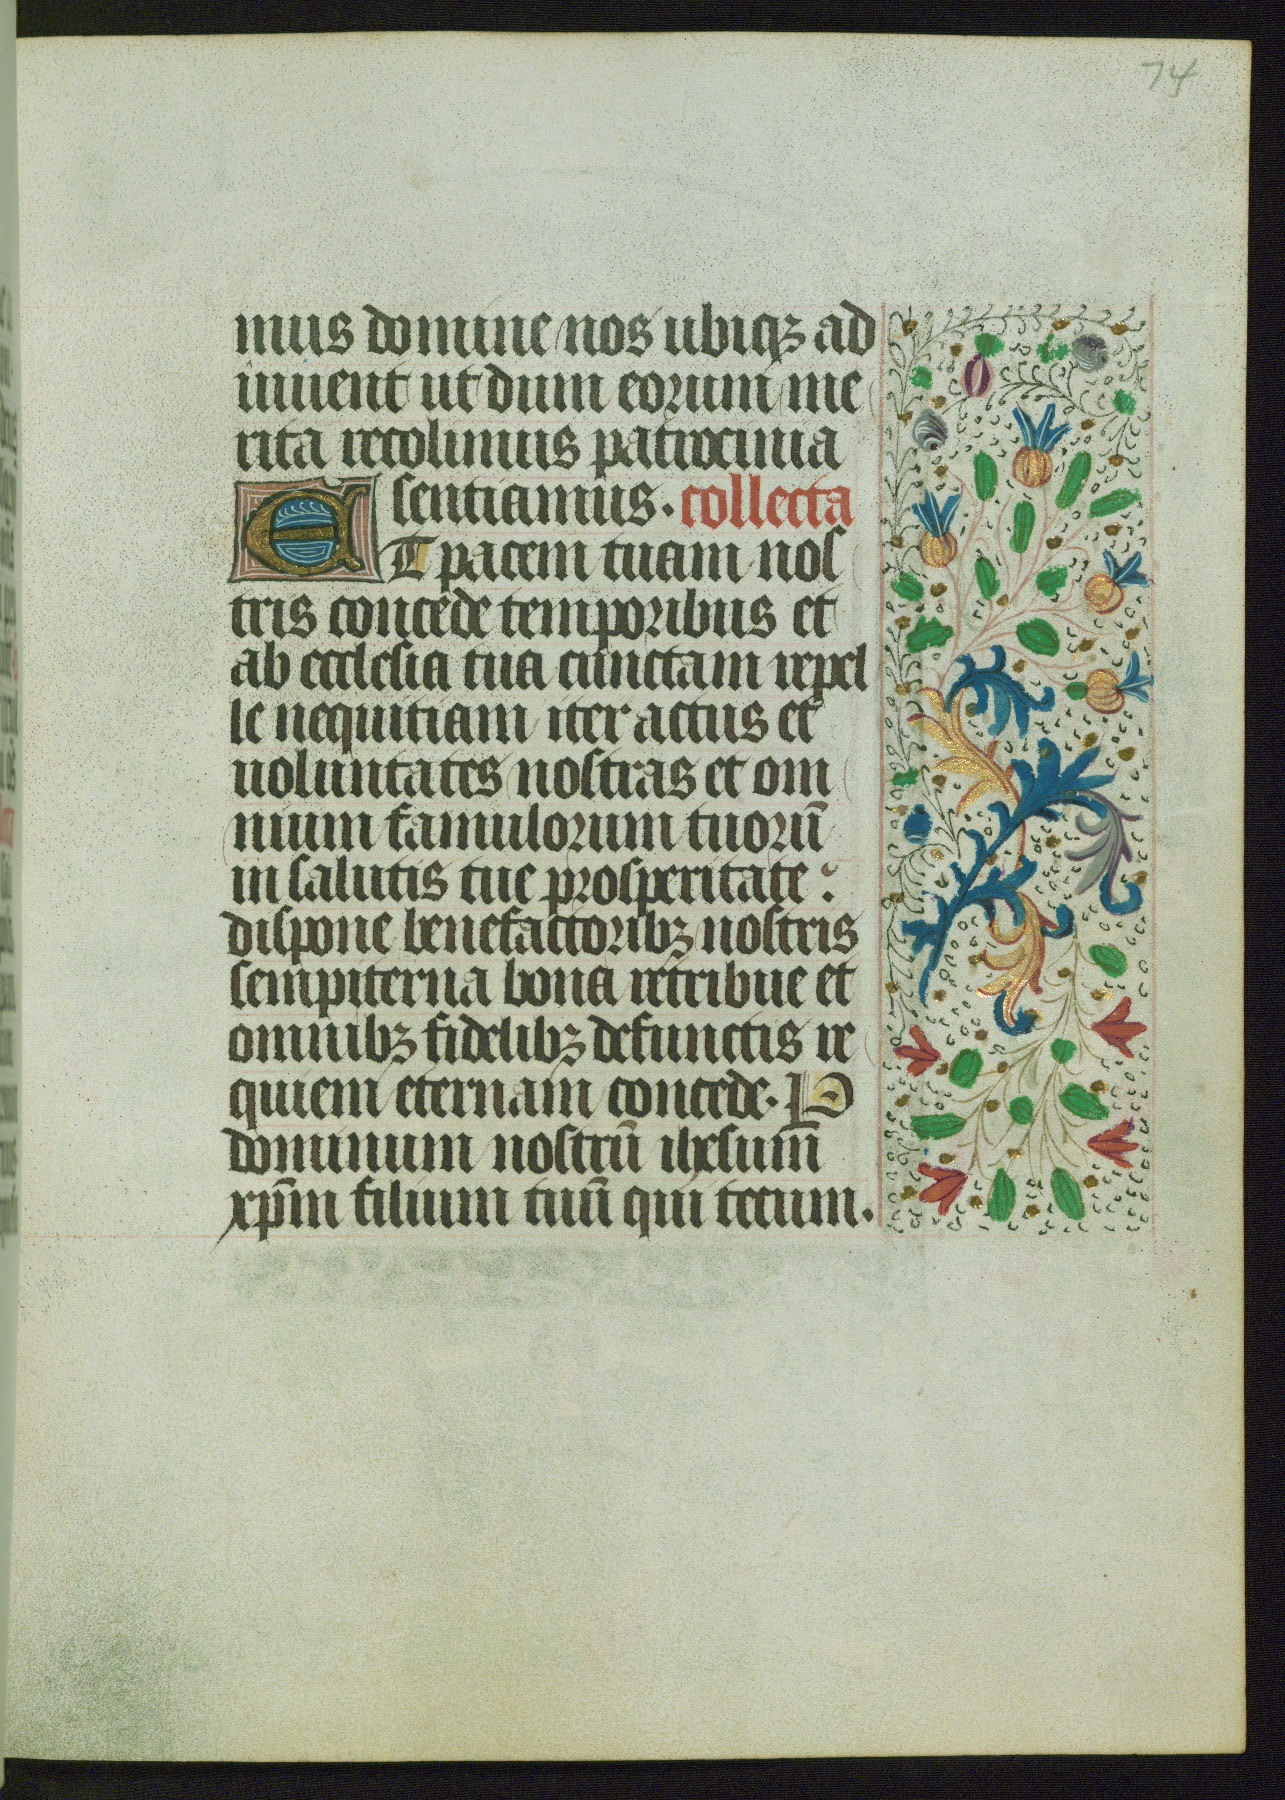 74
mus domine nos ubiqꝫ ad
iuuent ut dum eorum me
rita recolimus patrocinia
sentiamus. collecta
ET pacem tuam nos
tris concede temporibus et
ab ecclesia tua cunctam repel
le nequitiam iter actus et
uoluntates nostras et om
nium famulorum tuorū
in salutis tue prosperitate :
dispone benefactoribꝫ nostris
sempiterna bona retribue et
omnibꝫ fidelibꝫ defunctis re
quiem eternam concede. P
dominum nostrū ihesum
xp̄m filium tuū qui tecum.